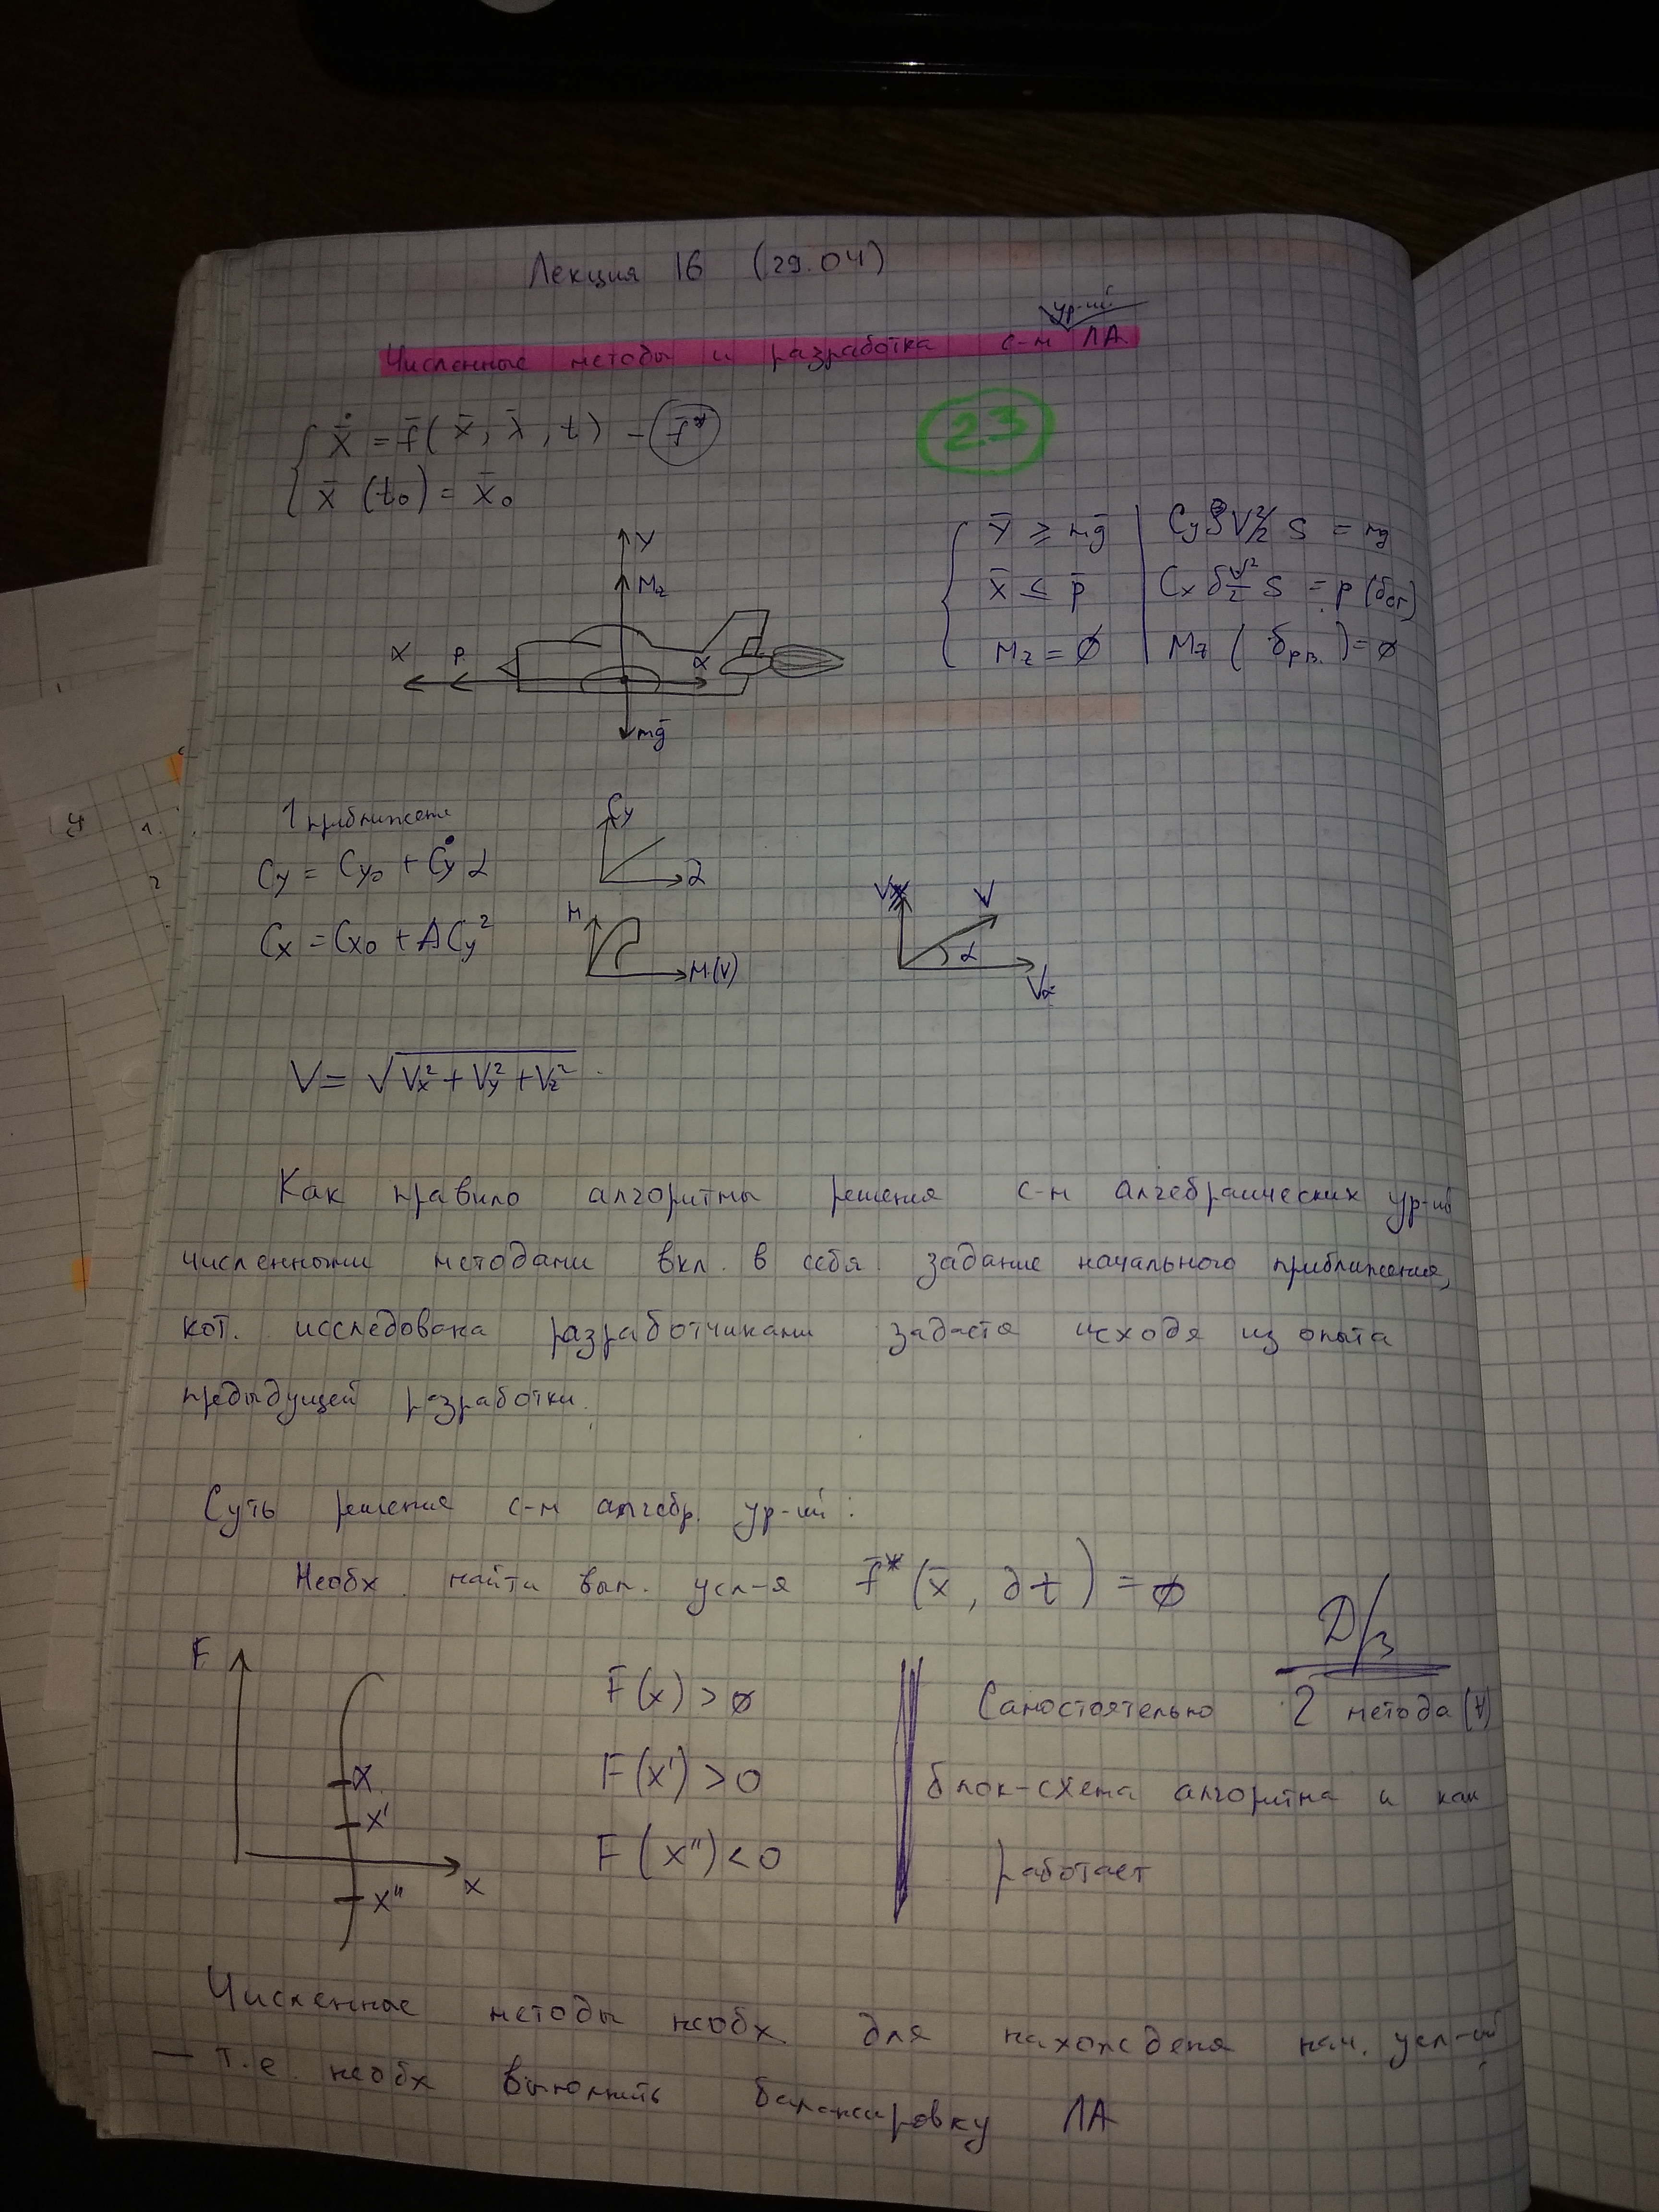 Лекция 16 (29.04)
ур-ий
Численные методы и разработка с-м ЛА.
ẋ̄ = f̄(x̄, λ̄, t) – f̄*
x̄(t₀) = x̄₀
23
Y
Mz
X P. X
mḡ
Ȳ ⩾ mḡ | Cy ρV²/2 S = mg
X̄ ⩽ P̄ | Cx ρV²/2 S = P(δ)
Mz = ∅ | Mz(δрв.) = ∅
1 приближение
Cy = Cy₀ + Cy α
Cy
α
Cx = Cx₀ + A Cy²
H
M(V)
V
α
Vx
V = √(Vx² + Vy² + Vz²)
Как правило алгоритмы решения с-м алгебраических ур-ий
численными методами вкл. в себя задание начального приближения,
кот. исследована разработчиками задаётся исходя из опыта
предыдущей разработки.
Суть решения с-м алгебр. ур-ий:
Необх. найти вып. усл-я f̄*(x̄, ∂t) = ∅
Д/з
F
x
x'
x''
x
F(x) > ∅
F(x') > 0
F(x'') < 0
Самостоятельно 2 метода (∀)
блок-схема алгоритма и как
работает
Численные методы необх. для нахождения нач. усл-ий
— т.е. необх выполнить балансировку ЛА